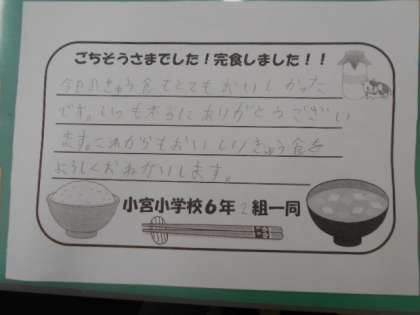 ごちそうさまでした！完食しました！！
今日のきゅう食もとてもおいしかった
です。いつも本当にありがとうござい
ます。これからもおいしいきゅう食を
よろしくおねがいします。
小宮小学校６年２組一同